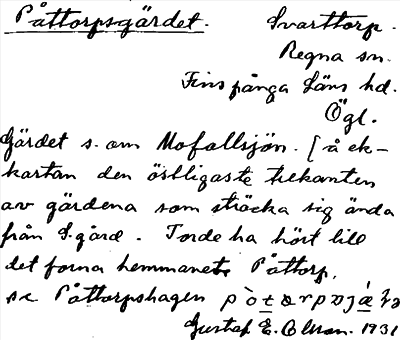 Påttorpsgärdet. Svarttorp.
Regna sn.
Finspånga Läns hd.
Ögl.
Gärdet s. om Mofallsjön. [å ek-
kartan den östligaste trekanten
av gärdena som sträcka sig ända
från S. gård. Torde ha hört till
det forna hemmanets Påttorp,
se Påttorpshagen
Gustaf E. Olsson. 1931